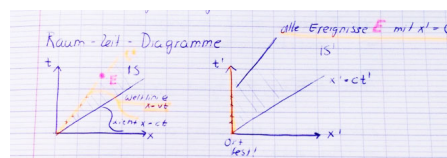 Raum-Zeit-Diagramme
alle Ereignisse E mit x' =
t
IS
E
Weltlinie
x=vt
Licht x=ct
x
t'
IS'
x'=ct'
x'
Ort
fest!